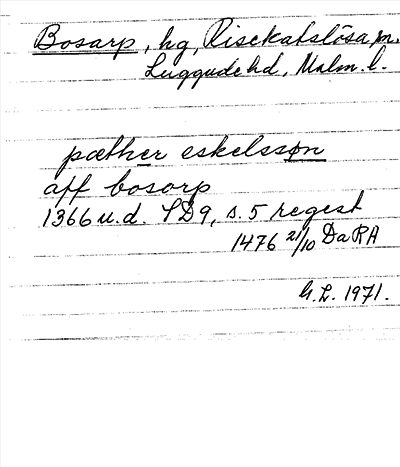 Bosarp, hg, Risekatslösa sn.
Luggude hd, Malm. l.
pæther eskelssøn
aff bosorp
1366 u.d. SD9, s. 5 regest
1476 21/10 DaRA
G.L. 1971.